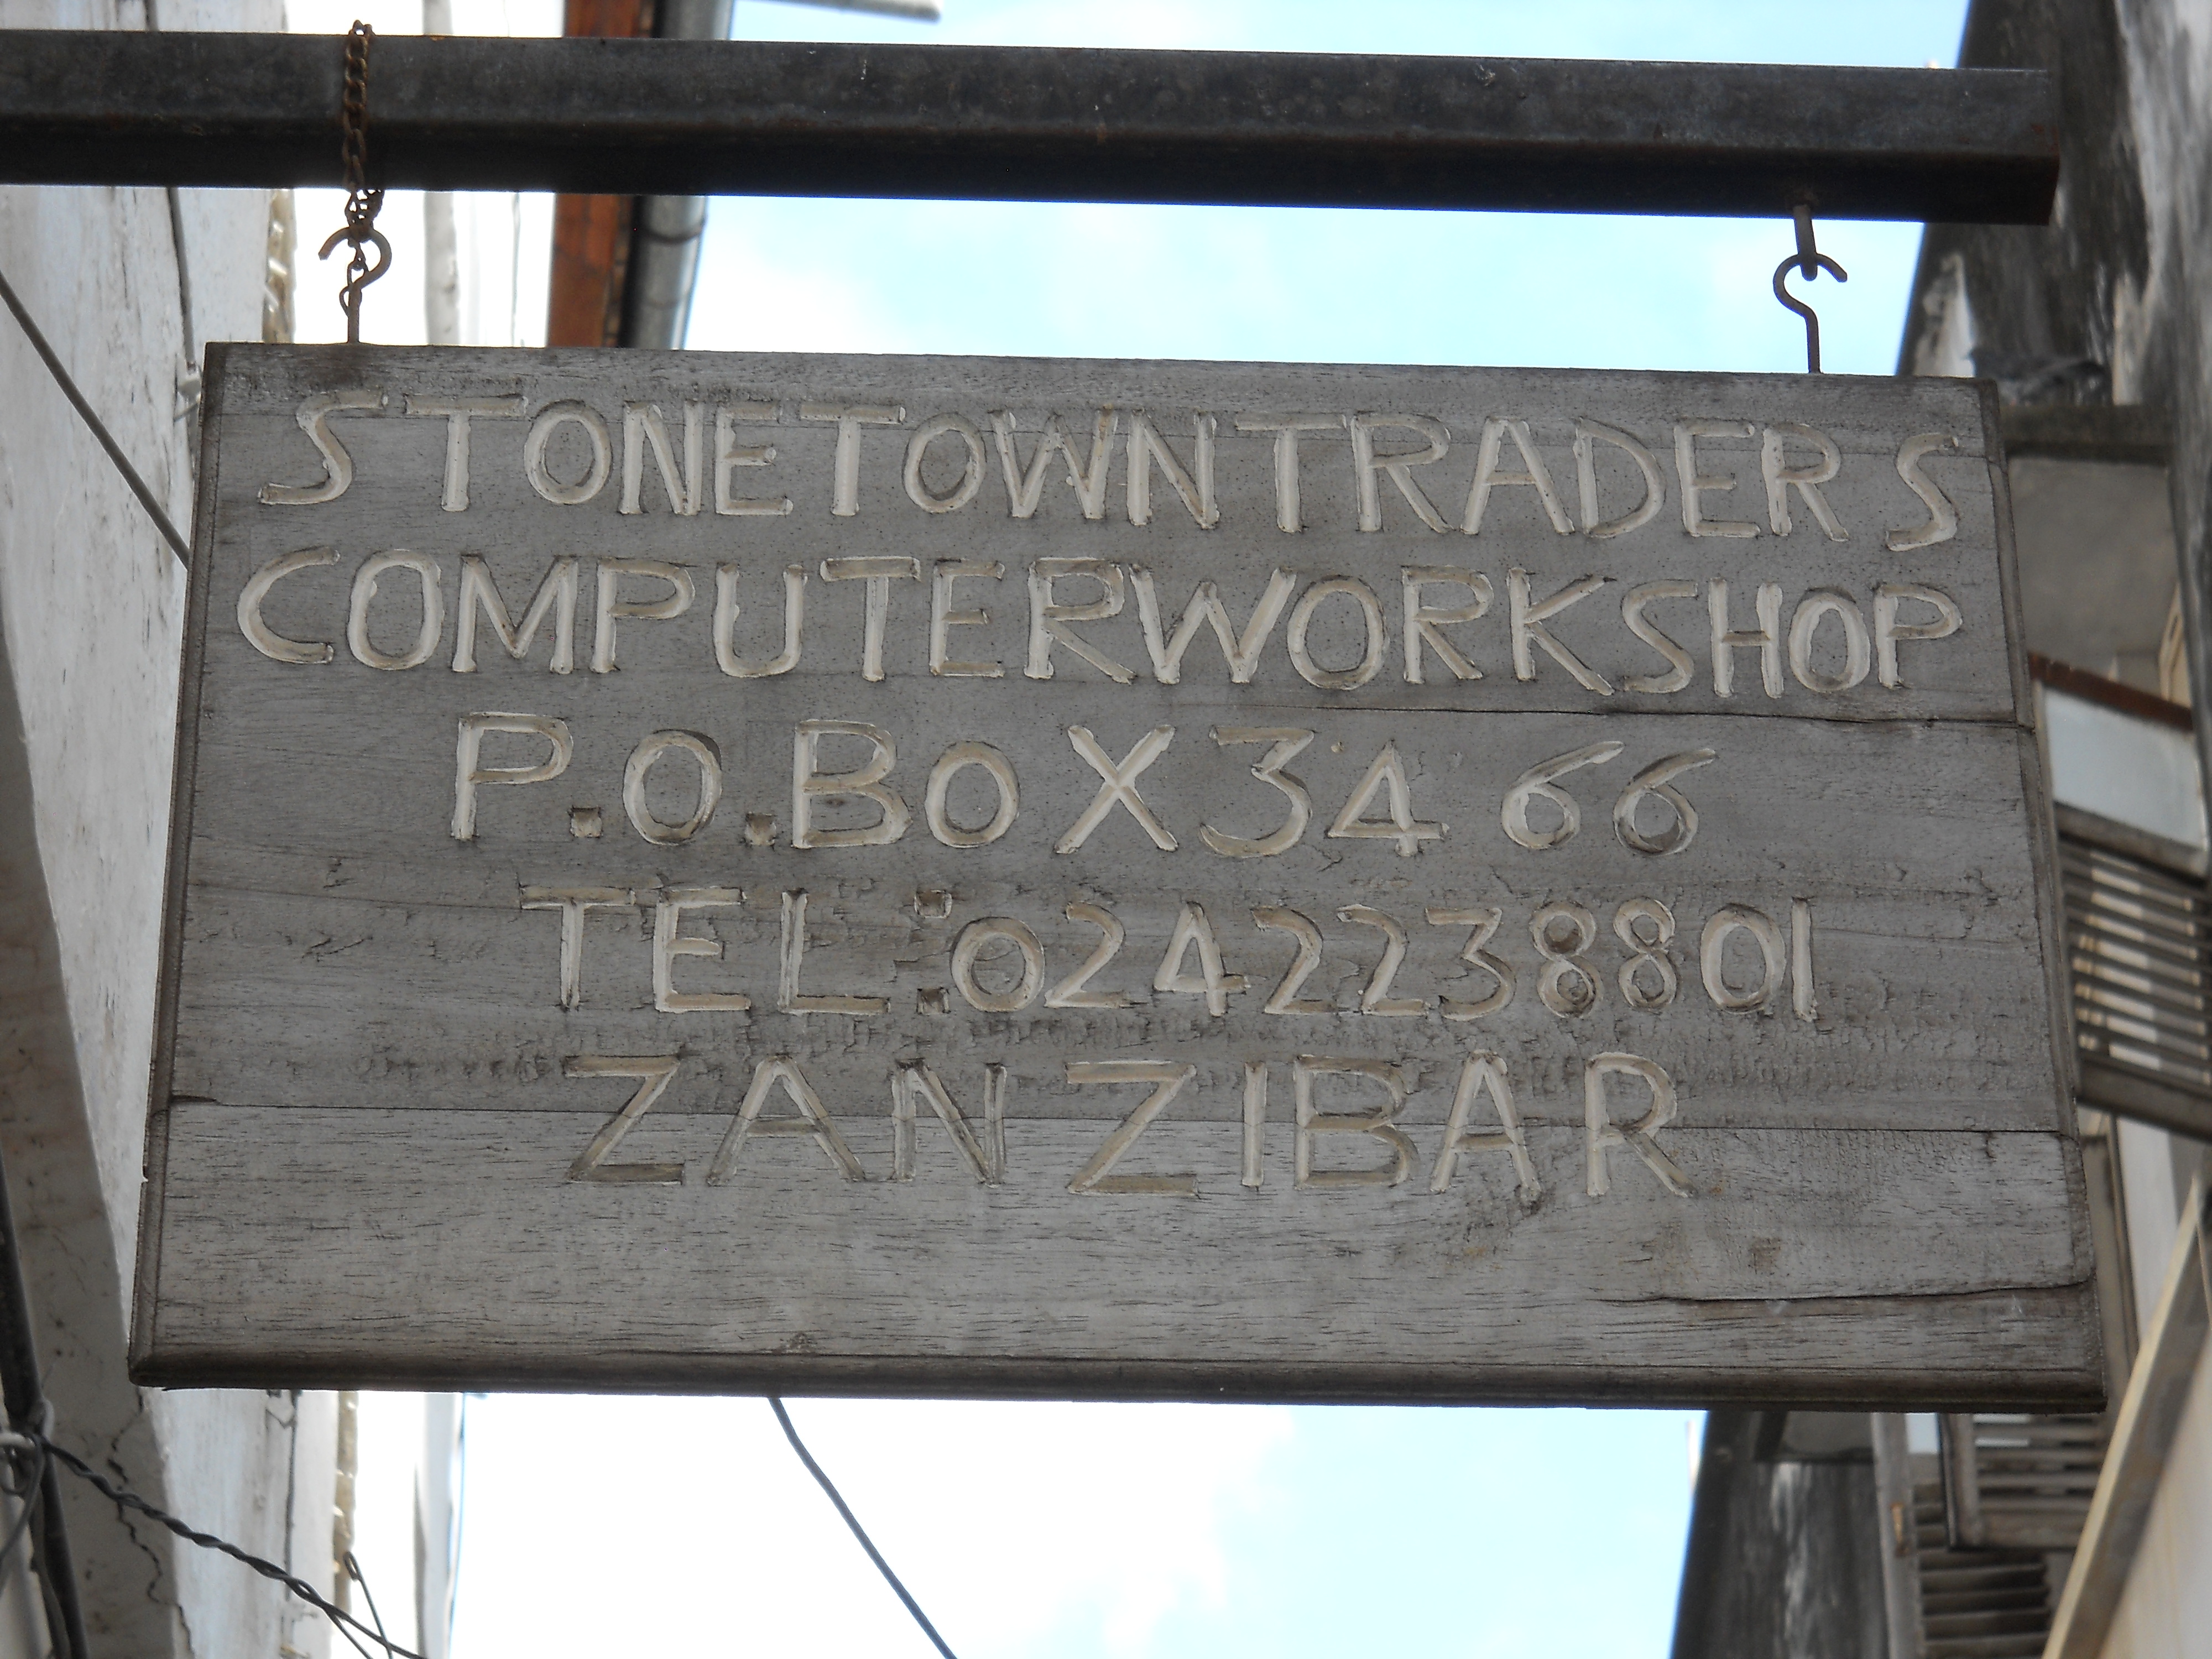 STONETOWNTRADERS
COMPUTERWORKSHOP
P.O.BOX3466
TEL:0242238801
ZANZIBAR